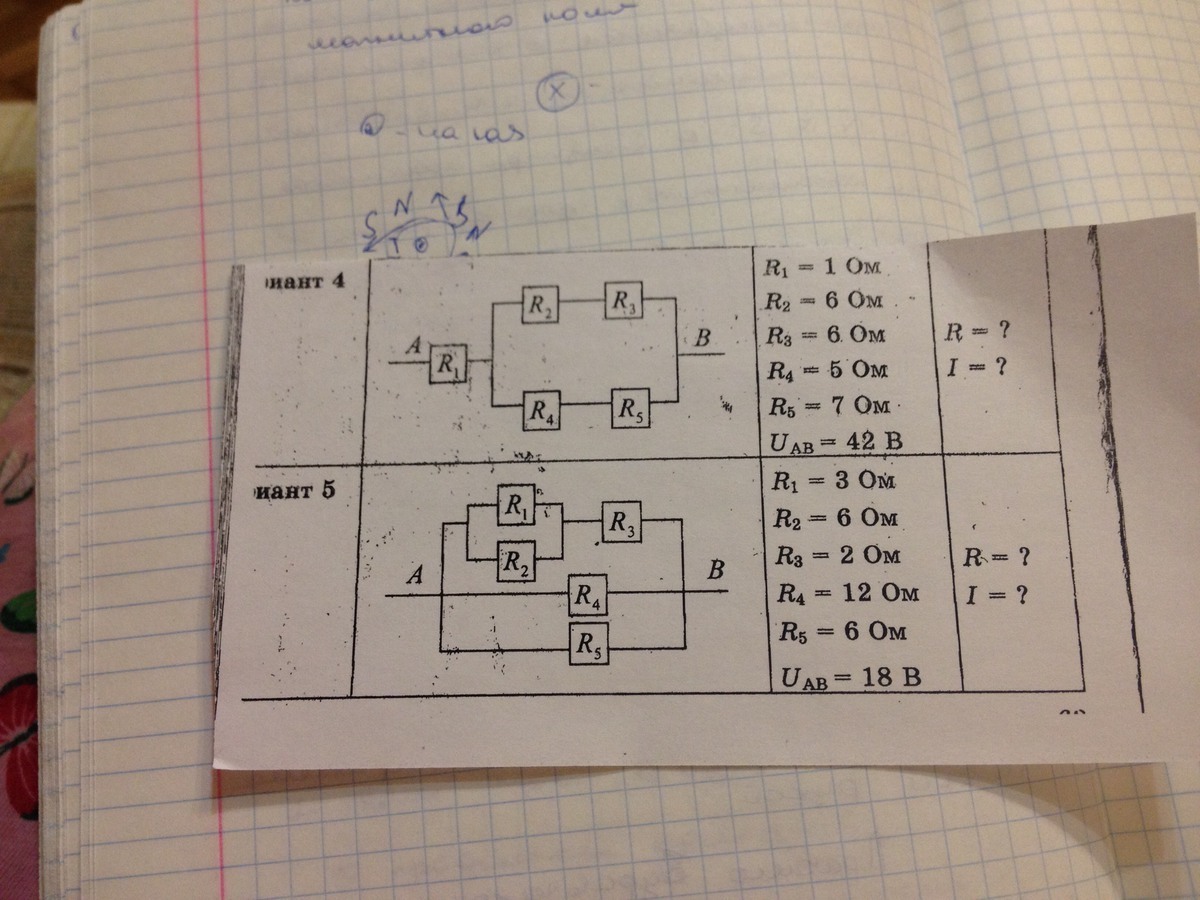 магнитного поля
X
S N ↑ B
N
риант 4
A
R₁
R₂
R₃
R₄
R₅
B
R₁ = 1 Ом
R₂ = 6 Ом
R₃ = 6 Ом
R₄ = 5 Ом
R₅ = 7 Ом
U_AB = 42 В
R = ?
I = ?
риант 5
A
R₁
R₂
R₃
R₄
R₅
B
R₁ = 3 Ом
R₂ = 6 Ом
R₃ = 2 Ом
R₄ = 12 Ом
R₅ = 6 Ом
U_AB = 18 В
R = ?
I = ?